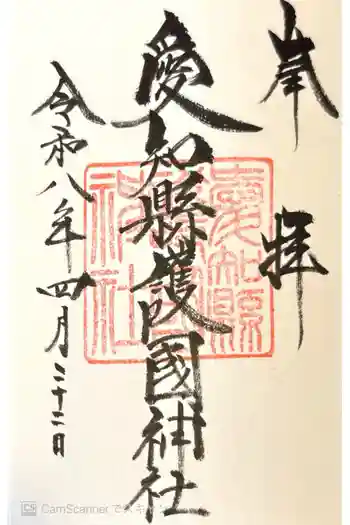 奉拝
愛知縣護國神社
令和八年四月二十二日
愛知縣護國神社
CS CamScanner でスキャン